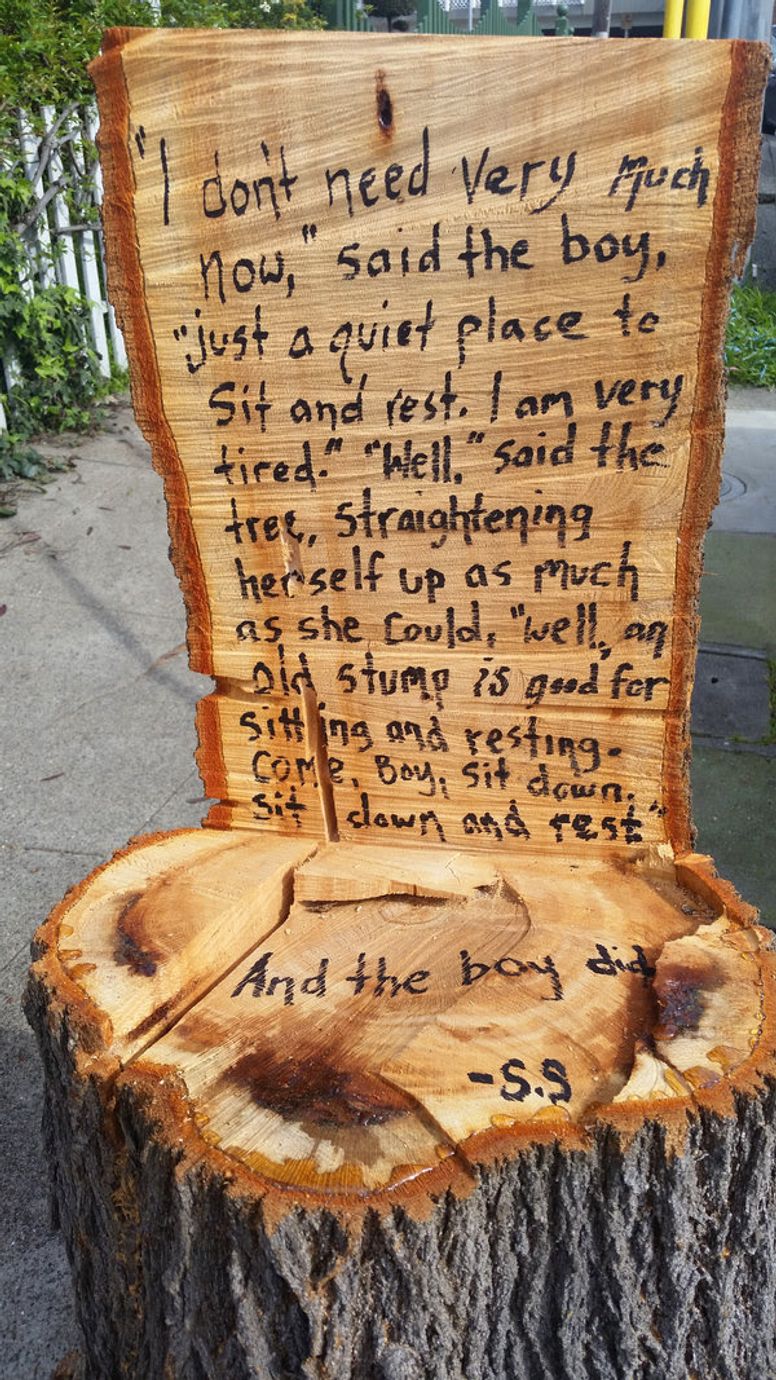 "I don't need very much
now," said the boy,
"just a quiet place to
sit and rest. I am very
tired." "Well," said the
tree, straightening
herself up as much
as she could, "well, an
old stump is good for
sitting and resting.
Come, Boy, sit down.
Sit down and rest"
And the boy did
-S.S